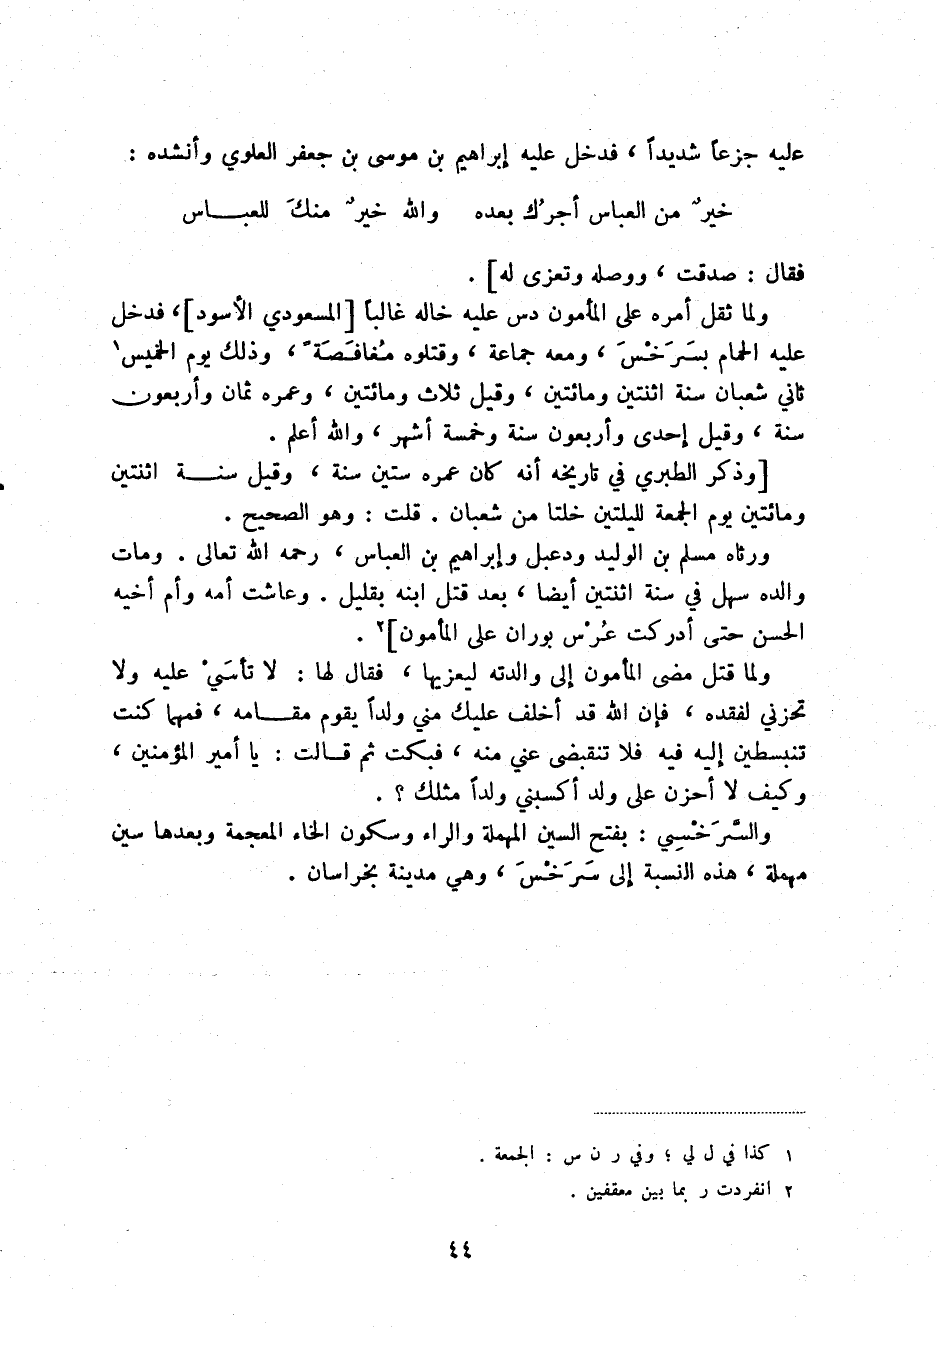 عليه جزعاً شديداً ، فدخل عليه إبراهيم بن موسى بن جعفر العلوي وأنشده :
خيرٌ من العباس أجرُك بعده والله خيرٌ منكَ للعبـــاس
فقال : صدقت ، ووصله وتعزى له] .
ولما ثقل أمره على المأمون دس عليه خاله غالباً [المسعودي الأسود]، فدخل
عليه الحمام بسَرَخْسَ ، ومعه جماعة ، وقتلوه مُغافَصَةً ، وذلك يوم الخميس١
ثاني شعبان سنة اثنتين ومائتين ، وقيل ثلاث ومائتين ، وعمره ثمان وأربعون
سنة ، وقيل إحدى وأربعون سنة وخمسة أشهر ، والله أعلم .
[وذكر الطبري في تاريخه أنه كان عمره ستين سنة ، وقيل سنــة اثنتين
ومائتين يوم الجمعة لليلتين خلتا من شعبان . قلت : وهو الصحيح .
ورثاه مسلم بن الوليد ودعبل وإبراهيم بن العباس ، رحمه الله تعالى . ومات
والده سهل في سنة اثنتين أيضا ، بعد قتل ابنه بقليل . وعاشت أمه وأم أخيه
الحسن حتى أدركت عُرْس بوران على المأمون]٢ .
ولما قتل مضى المأمون إلى والدته ليعزيها ، فقال لها : لا تأسَيْ عليه ولا
تحزني لفقده ، فإن الله قد أخلف عليك مني ولداً يقوم مقــامه ، فمهما كنت
تنبسطين إليه فيه فلا تنقبضي عني منه ، فبكت ثم قــالت : يا أمير المؤمنين ،
وكيف لا أحزن على ولد أكسبني ولداً مثلك ؟ .
والسَّرَخْسِي : بفتح السين المهملة والراء وسكون الخاء المعجمة وبعدها سين
مهملة ، هذه النسبة إلى سَرَخْسَ ، وهي مدينة بخراسان .
١ كذا في ل لي ؛ وفي ر ن س : الجمعة .
٢ انفردت ر بما بين معقفين .
٤٤